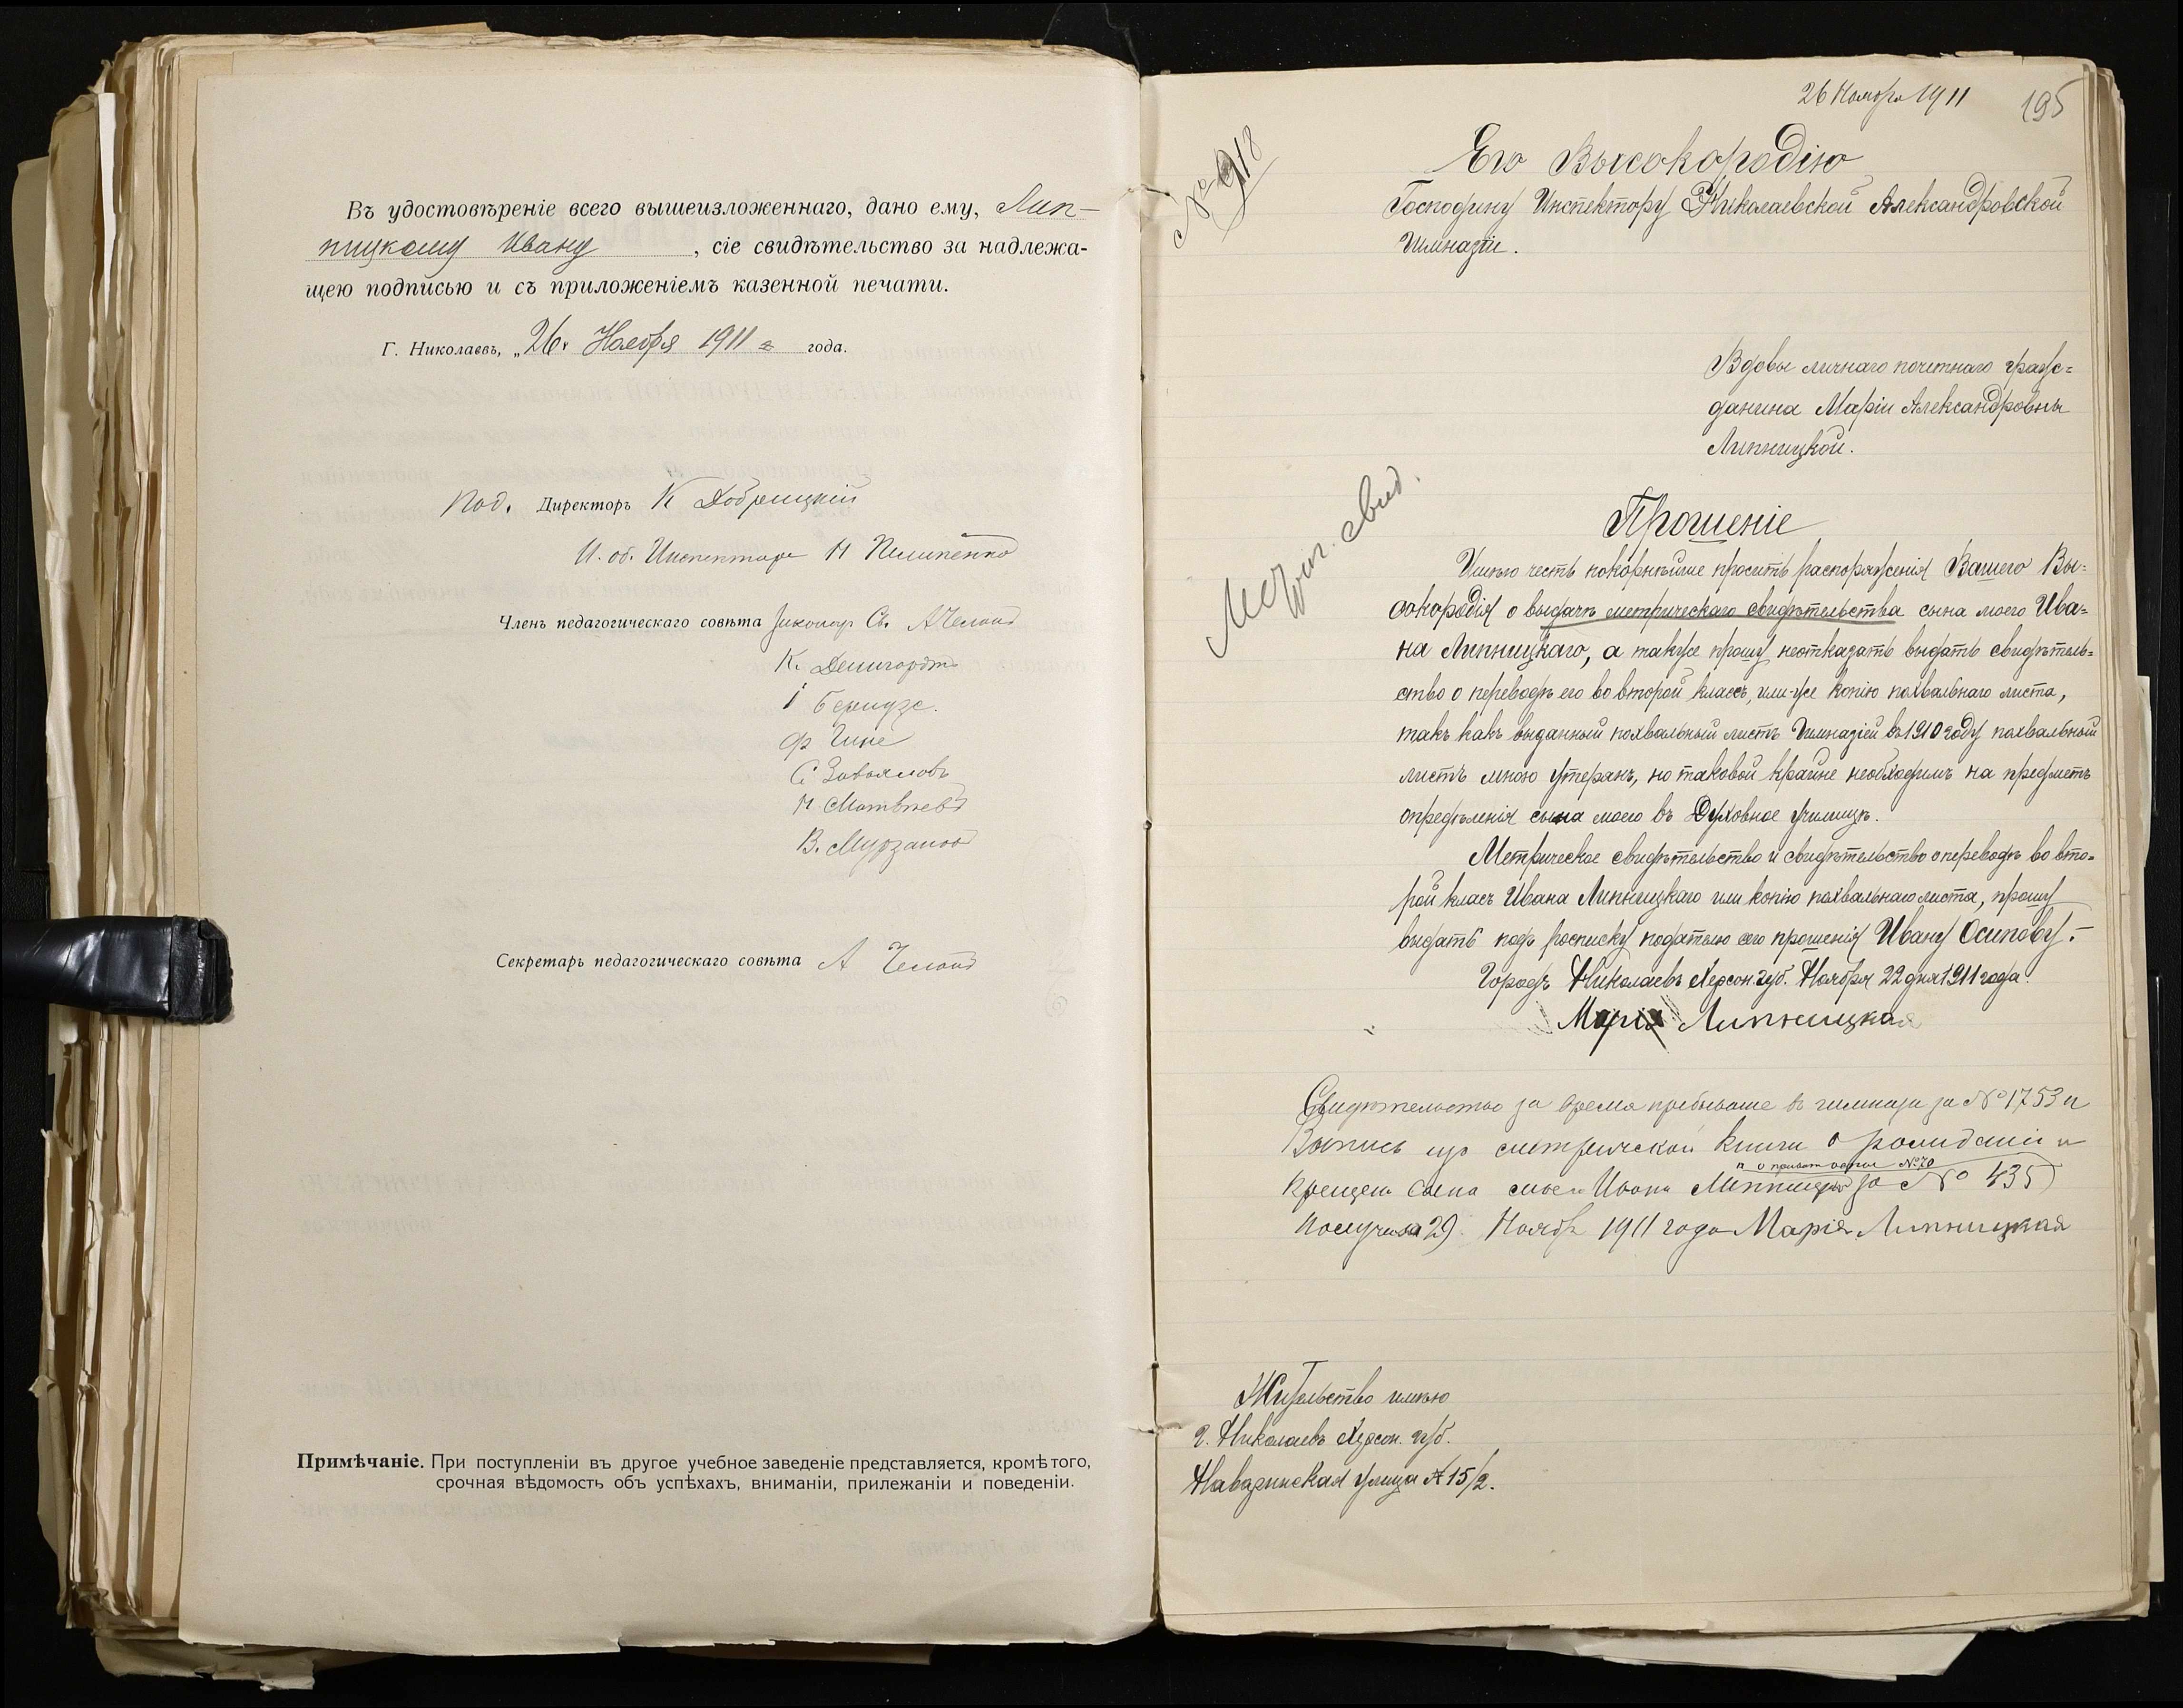 Въ удостовѣреніе всего вышеизложеннаго, дано ему, Лип-
ницкому Ивану, сіе свидѣтельство за надлежа-
щею подписью и съ приложеніемъ казенной печати.
Г. Николаевъ, „26" Ноября 1911 года.
Под. Директоръ К Добрицкій
И. об. Инспектора Н Пилипенко
Членъ педагогическаго совѣта Св. А
К.
І
Ф Гине
С. Завьяловъ
Н Матвѣевъ
В. Мурзановъ
Секретарь педагогическаго совѣта А
Примѣчаніе. При поступленіи въ другое учебное заведеніе представляется, кромѣ того,
срочная вѣдомость объ успѣхахъ, вниманіи, прилежаніи и поведеніи.
26 Ноября 1911
195
№ 918
Его Высокородію
Господину Инспектору Николаевской Александровской
Гимназіи.
Вдовы личнаго почетнаго граж=
данина Маріи Александровны
Липницкой.
Метрич. свид.
Прошеніе
Имѣю честь покорнѣйше просить распоряженія Вашего Вы=
сокородія о выдачѣ метрическаго свидѣтельства сына моего Ива=
на Липницкаго, а также прошу неотказать выдать свидѣтель=
ство о переводѣ его во второй классъ, или-же копію похвальнаго листа,
такъ какъ выданный похвальный листъ Гимназіей въ 1910 году похвальный
листъ мною утерянъ, но таковой крайне необходимъ на предметъ
опредѣленія сына моего въ Духовное училище.
Метрическое свидѣтельство и свидѣтельство о переводѣ во вто=
рой класъ Ивана Липницкаго или копію похвальнаго листа, прошу
выдать подъ росписку подателю сего прошенія Ивану Осипову.-
Городъ Николаевъ Херсон. губ. Ноября 22 дня 1911 года.
Марія Липницкая
Свидѣтельство за время пребыванія въ гимназіи за № 1753 и
Выпись изъ метрической книги о рожденіи и
№ 70
крещеніи сына моего Ивана Липницкаго за № 435
получила 29. Ноября 1911 года Марія Липницкая
Жительство имѣю
г. Николаевъ Херсон. губ.
Наваринская улица № 15/2.